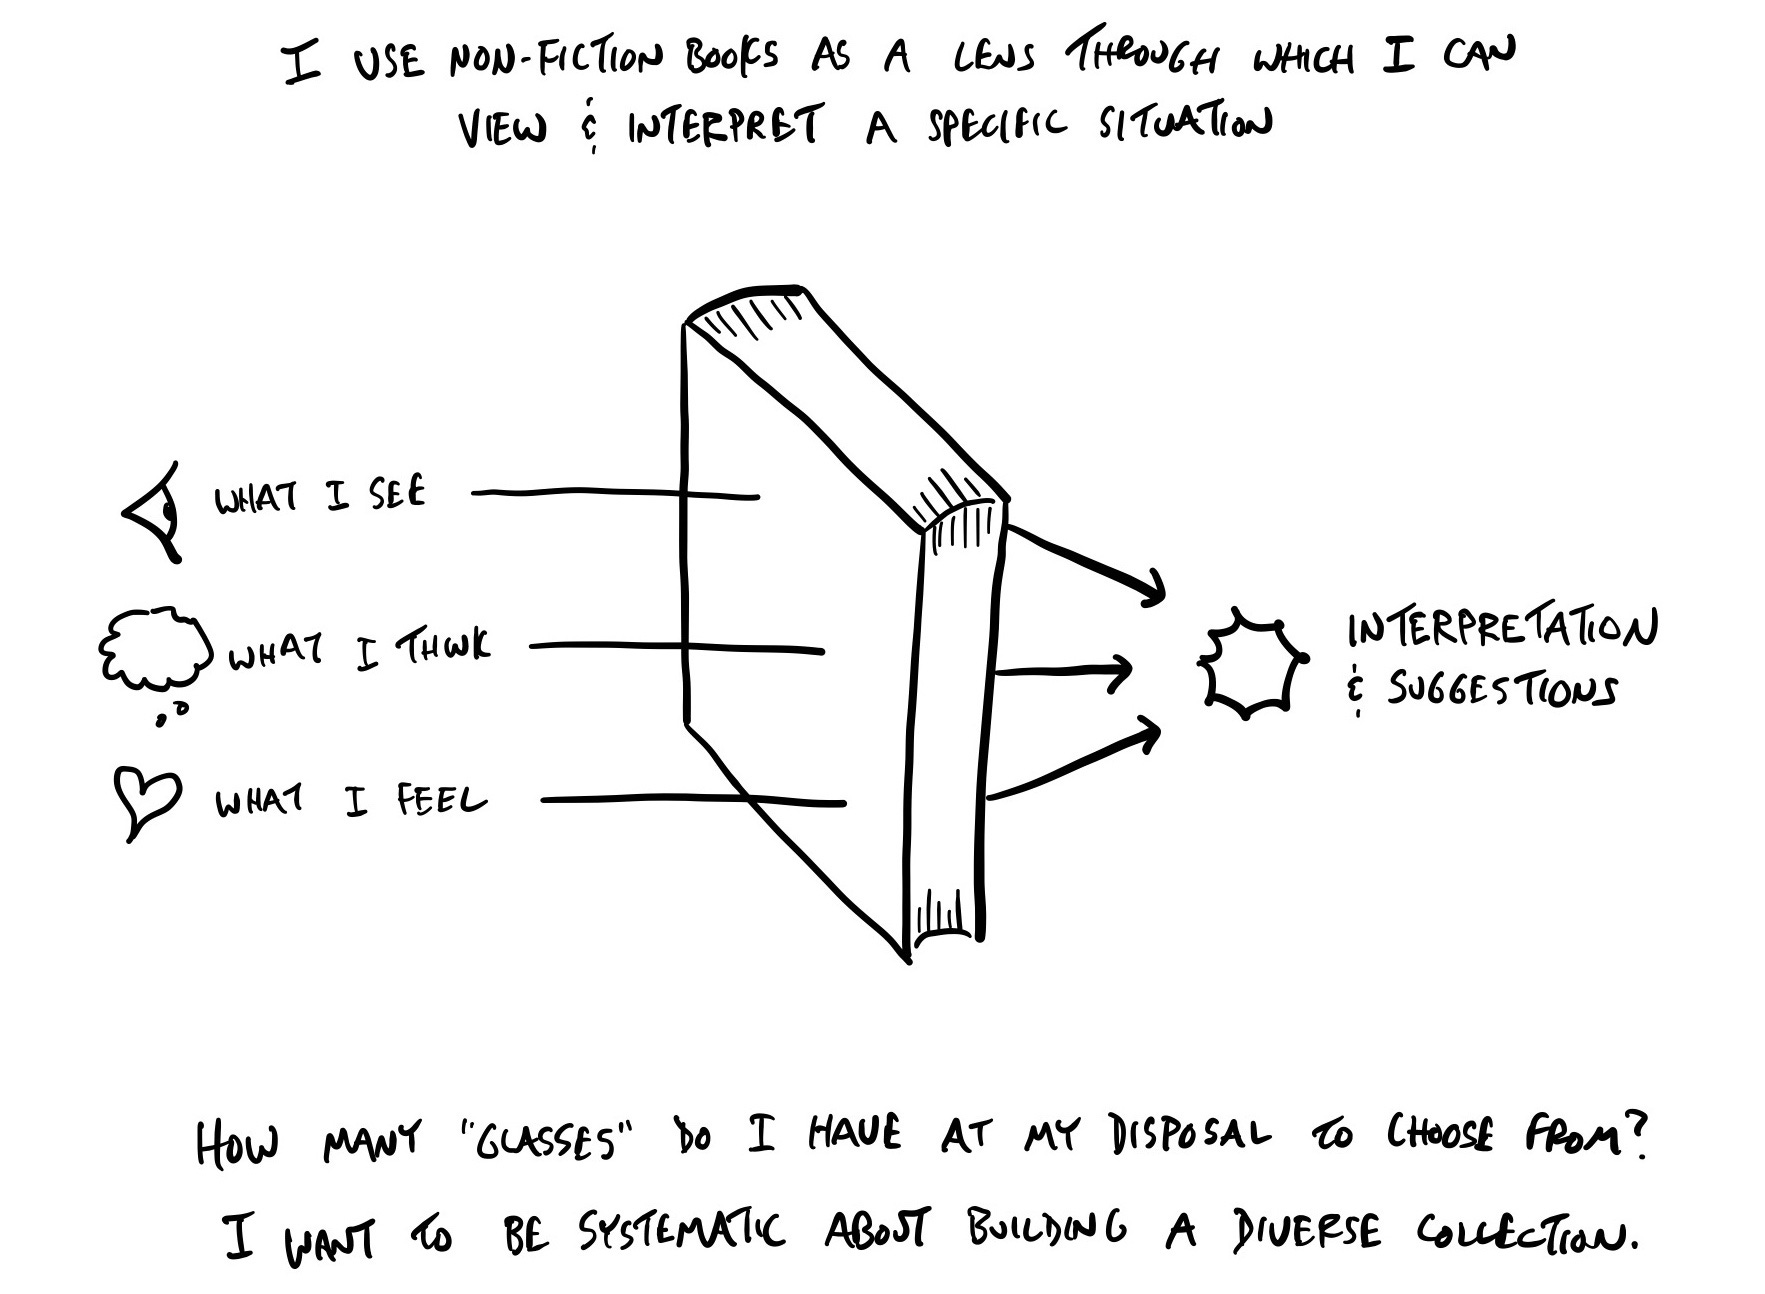 I USE NON-FICTION BOOKS AS A LENS THROUGH WHICH I CAN
VIEW & INTERPRET A SPECIFIC SITUATION
WHAT I SEE
WHAT I THINK
WHAT I FEEL
INTERPRETATION
& SUGGESTIONS
HOW MANY "GLASSES" DO I HAVE AT MY DISPOSAL TO CHOOSE FROM?
I WANT TO BE SYSTEMATIC ABOUT BUILDING A DIVERSE COLLECTION.